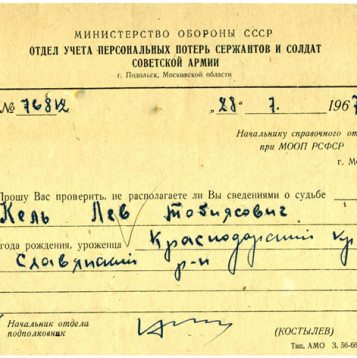 МИНИСТЕРСТВО ОБОРОНЫ СССР
ОТДЕЛ УЧЕТА ПЕРСОНАЛЬНЫХ ПОТЕРЬ СЕРЖАНТОВ И СОЛДАТ
СОВЕТСКОЙ АРМИИ
г. Подольск, Московской области
№ 76812 „28“ 7. 1967
Начальнику справочного от
при МООП РСФСР
г. М
Прошу Вас проверить, не располагаете ли Вы сведениями о судьбе
Кель Лев Тобиясович
года рождения, уроженца Краснодарский кр
Славянский р-н
Начальник отдела
подполковник
(КОСТЫЛЕВ)
Тип. АМО З. 56-66